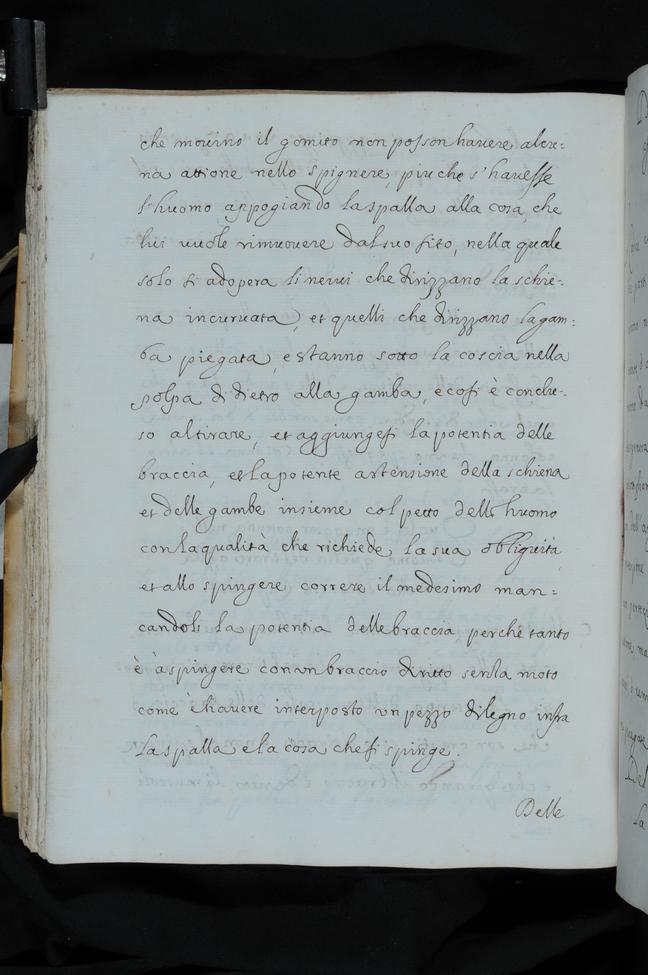 che movino il gomito non posson havere alcu=
na attione nello spignere, piu che s'havesse
l'huomo appogiando la spalla alla cosa, che
lui vuole rimuovere dal suo sito, nella quale
solo si adopera li nervi che dirizzano la schie=
na incurvata, et quelli che dirizzano la gam=
ba piegata, e stanno sotto la coscia nella
polpa di dietro alla gamba, e cosi è conclu=
so al tirare, et aggiungesi la potentia delle
braccia, et la potente astensione della schiena
et delle gambe insieme col petto dell'huomo
con la qualità che richiede la sua obliquità,
et allo spingere correre il medesimo man=
candoli la potentia delle braccia perche tanto
è à spingere con un braccio diritto senza moto
come è havere interposto un pezzo di legno infra
la spalla e la cosa che si spinge.
Delle